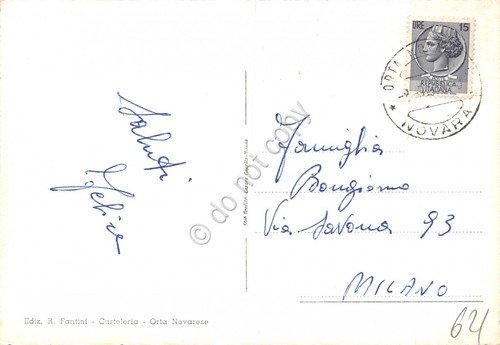 LIRE 15
REPUBBLICA
ITALIANA
ORTA
NOVARA
Saluti
Famiglia
Bongiorno
Via Savona 93
MILANO
62
Ediz. R. Fantini - Cartoleria - Orta Novarese
do not copy